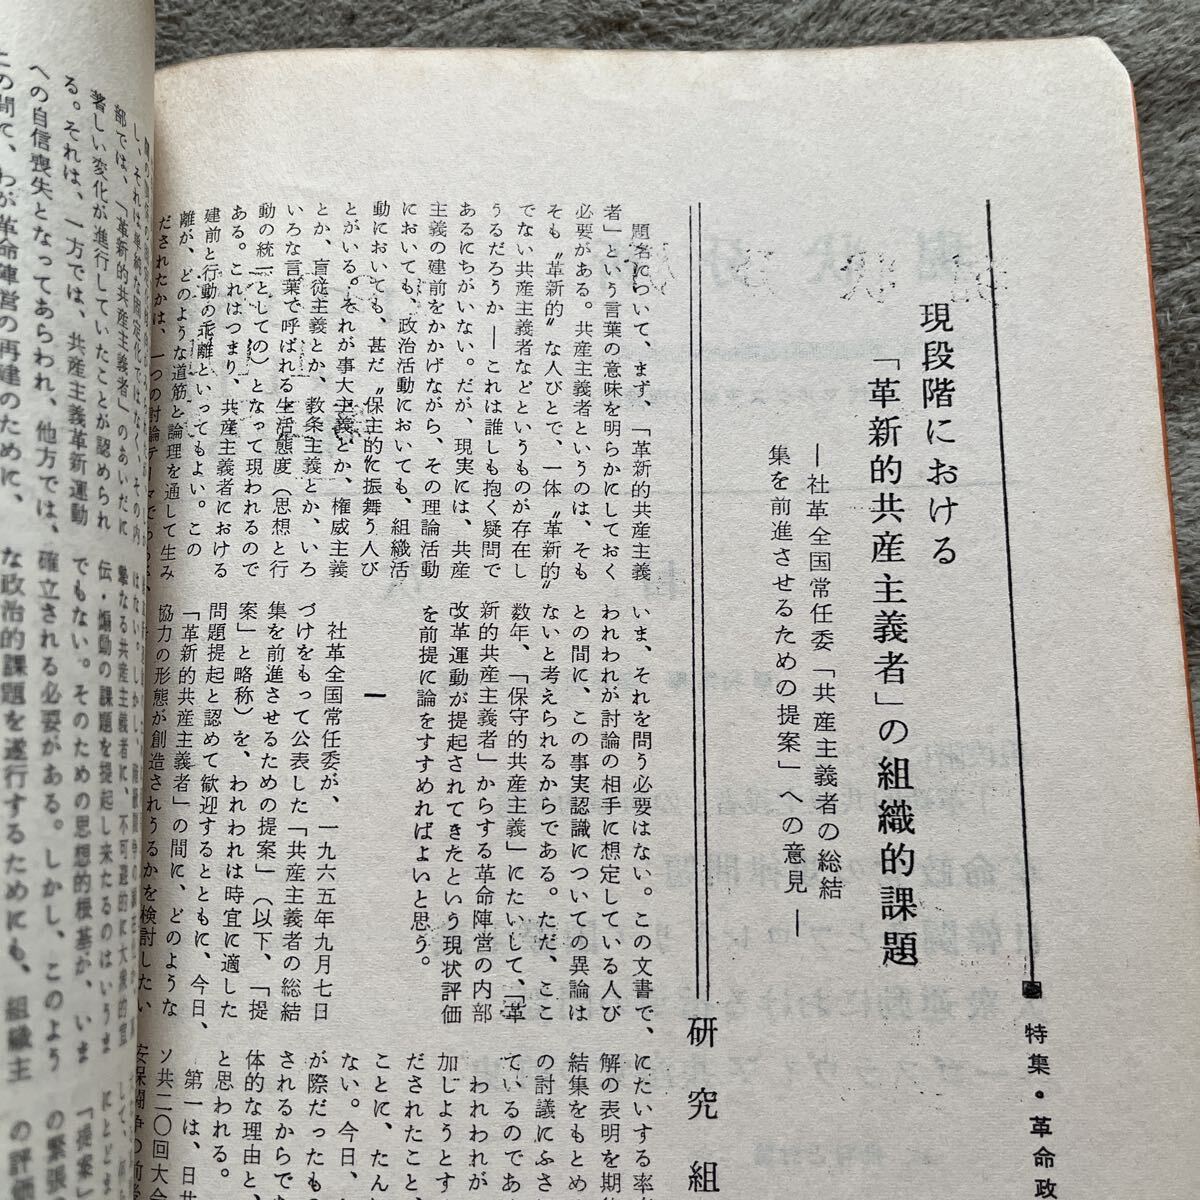 特集・革命政
現段階における
「革新的共産主義者」の組織的課題
―社革全国常任委「共産主義者の総結
集を前進させるための提案」への意見―
研究組
題名について、まず、「革新的共産主義
者」という言葉の意味を明らかにしておく
必要がある。共産主義者というのは、そも
そも〝革新的〟な人びとで、一体〝革新的〟
でない共産主義者などというものが存在し
うるだろうか――これは誰しも抱く疑問で
あるにちがいない。だが、現実には、共産
主義の建前をかかげながら、その理論活動
においても、政治活動においても、組織活
動においても、甚だ〝保主的〟に振舞う人び
とがいる。それが事大主義とか、権威主義
とか、盲従主義とか、教条主義とか、いろ
いろな言葉で呼ばれる生活態度（思想と行
動の統一としての）となって現われるので
ある。これはつまり、共産主義者における
建前と行動の乖離といってもよい。この
離が、どのような道筋と論理を通して生み
だされたかは、一つの討論テーマであるが、
いま、それを問う必要はない。この文書で、
われわれが討論の相手に想定している人び
との間に、この事実認識についての異論は
ないと考えられるからである。ただ、ここ
数年、「保守的共産主義」にたいして、「革
新的共産主義者」からする革命陣営の内部
改革運動が提起されてきたという現状評価
を前提に論をすすめればよいと思う。
一
社革全国常任委が、一九六五年九月七日
づけをもって公表した「共産主義者の総結
集を前進させるための提案」（以下、「提
案」と略称）を、われわれは時宜に適した
問題提起と認めて歓迎するとともに、今日、
「革新的共産主義者」の間に、どのような
協力の形態が創造されうるかを検討したい
にたいする率
解の表明を期
結集をもとめ
の討議にふさ
ているのであ
われわれが
加しようとす
だされたこと、
ことに、たん
ない。今日、
が際だったもの
されるからで
体的な理由と、
と思われる。
第一は、日共
ソ共二〇回大会
安保闘争の前
し、それは単純な固定化ではなく、その内
部では、「革新的共産主義者」のあいだに
著しい変化が進行していたことが認められ
る。それは、一方では、共産主義革新運動
への自信喪失となってあらわれ、他方では、
この間で、わが革命陣営の再建のために、
摯なる共産主義者に、不可避的に大衆的宣
伝・煽動の課題を提起し来たるのはいうま
でもない。そのための思想的根基が、いま
確立される必要がある。しかし、このよう
な政治的課題を遂行するためにも、組織主
にとどま
「提案」
の緊張
の評価